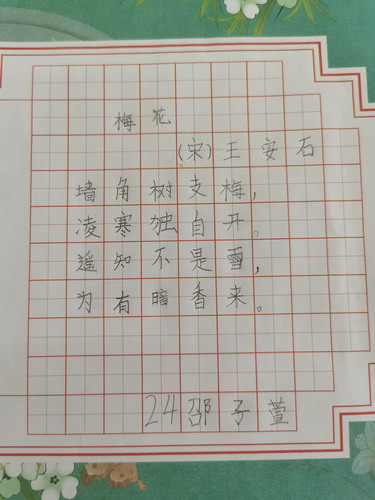 梅花
(宋)王安石
墙角树支梅,
凌寒独自开。
遥知不是雪,
为有暗香来。
24邵子萱